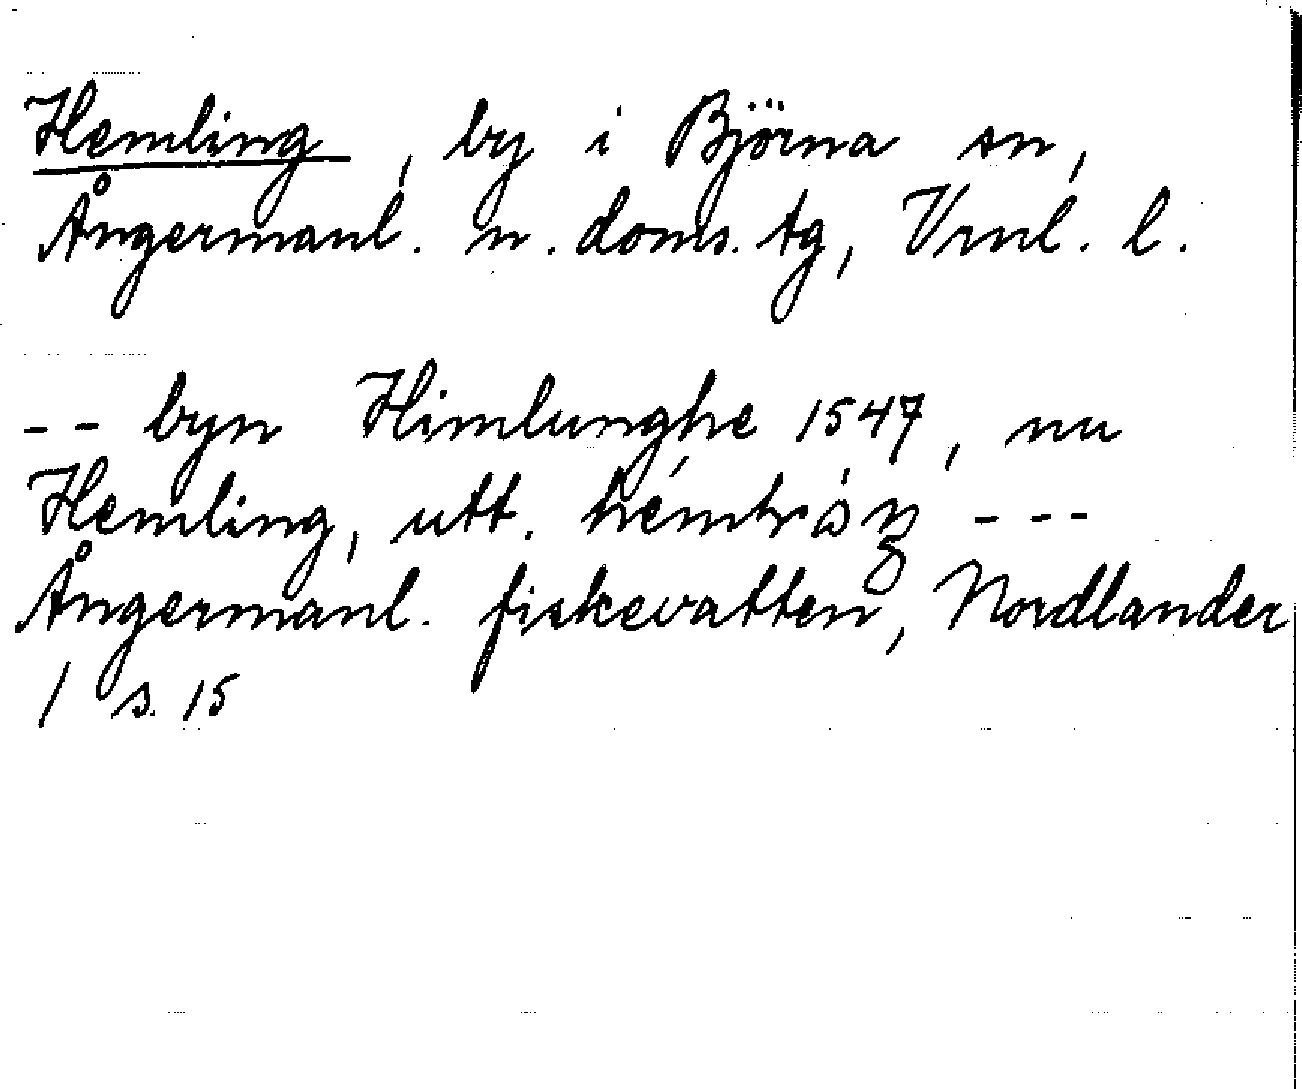 Hemling, by i Björna sn,
Ångermanl. n. doms. tg, Vrnl. l.
-- byn Himlunghe 1547, nu
Hemling, utt. ---
Ångermanl. fiskevatten, Nordlander
/ s. 15